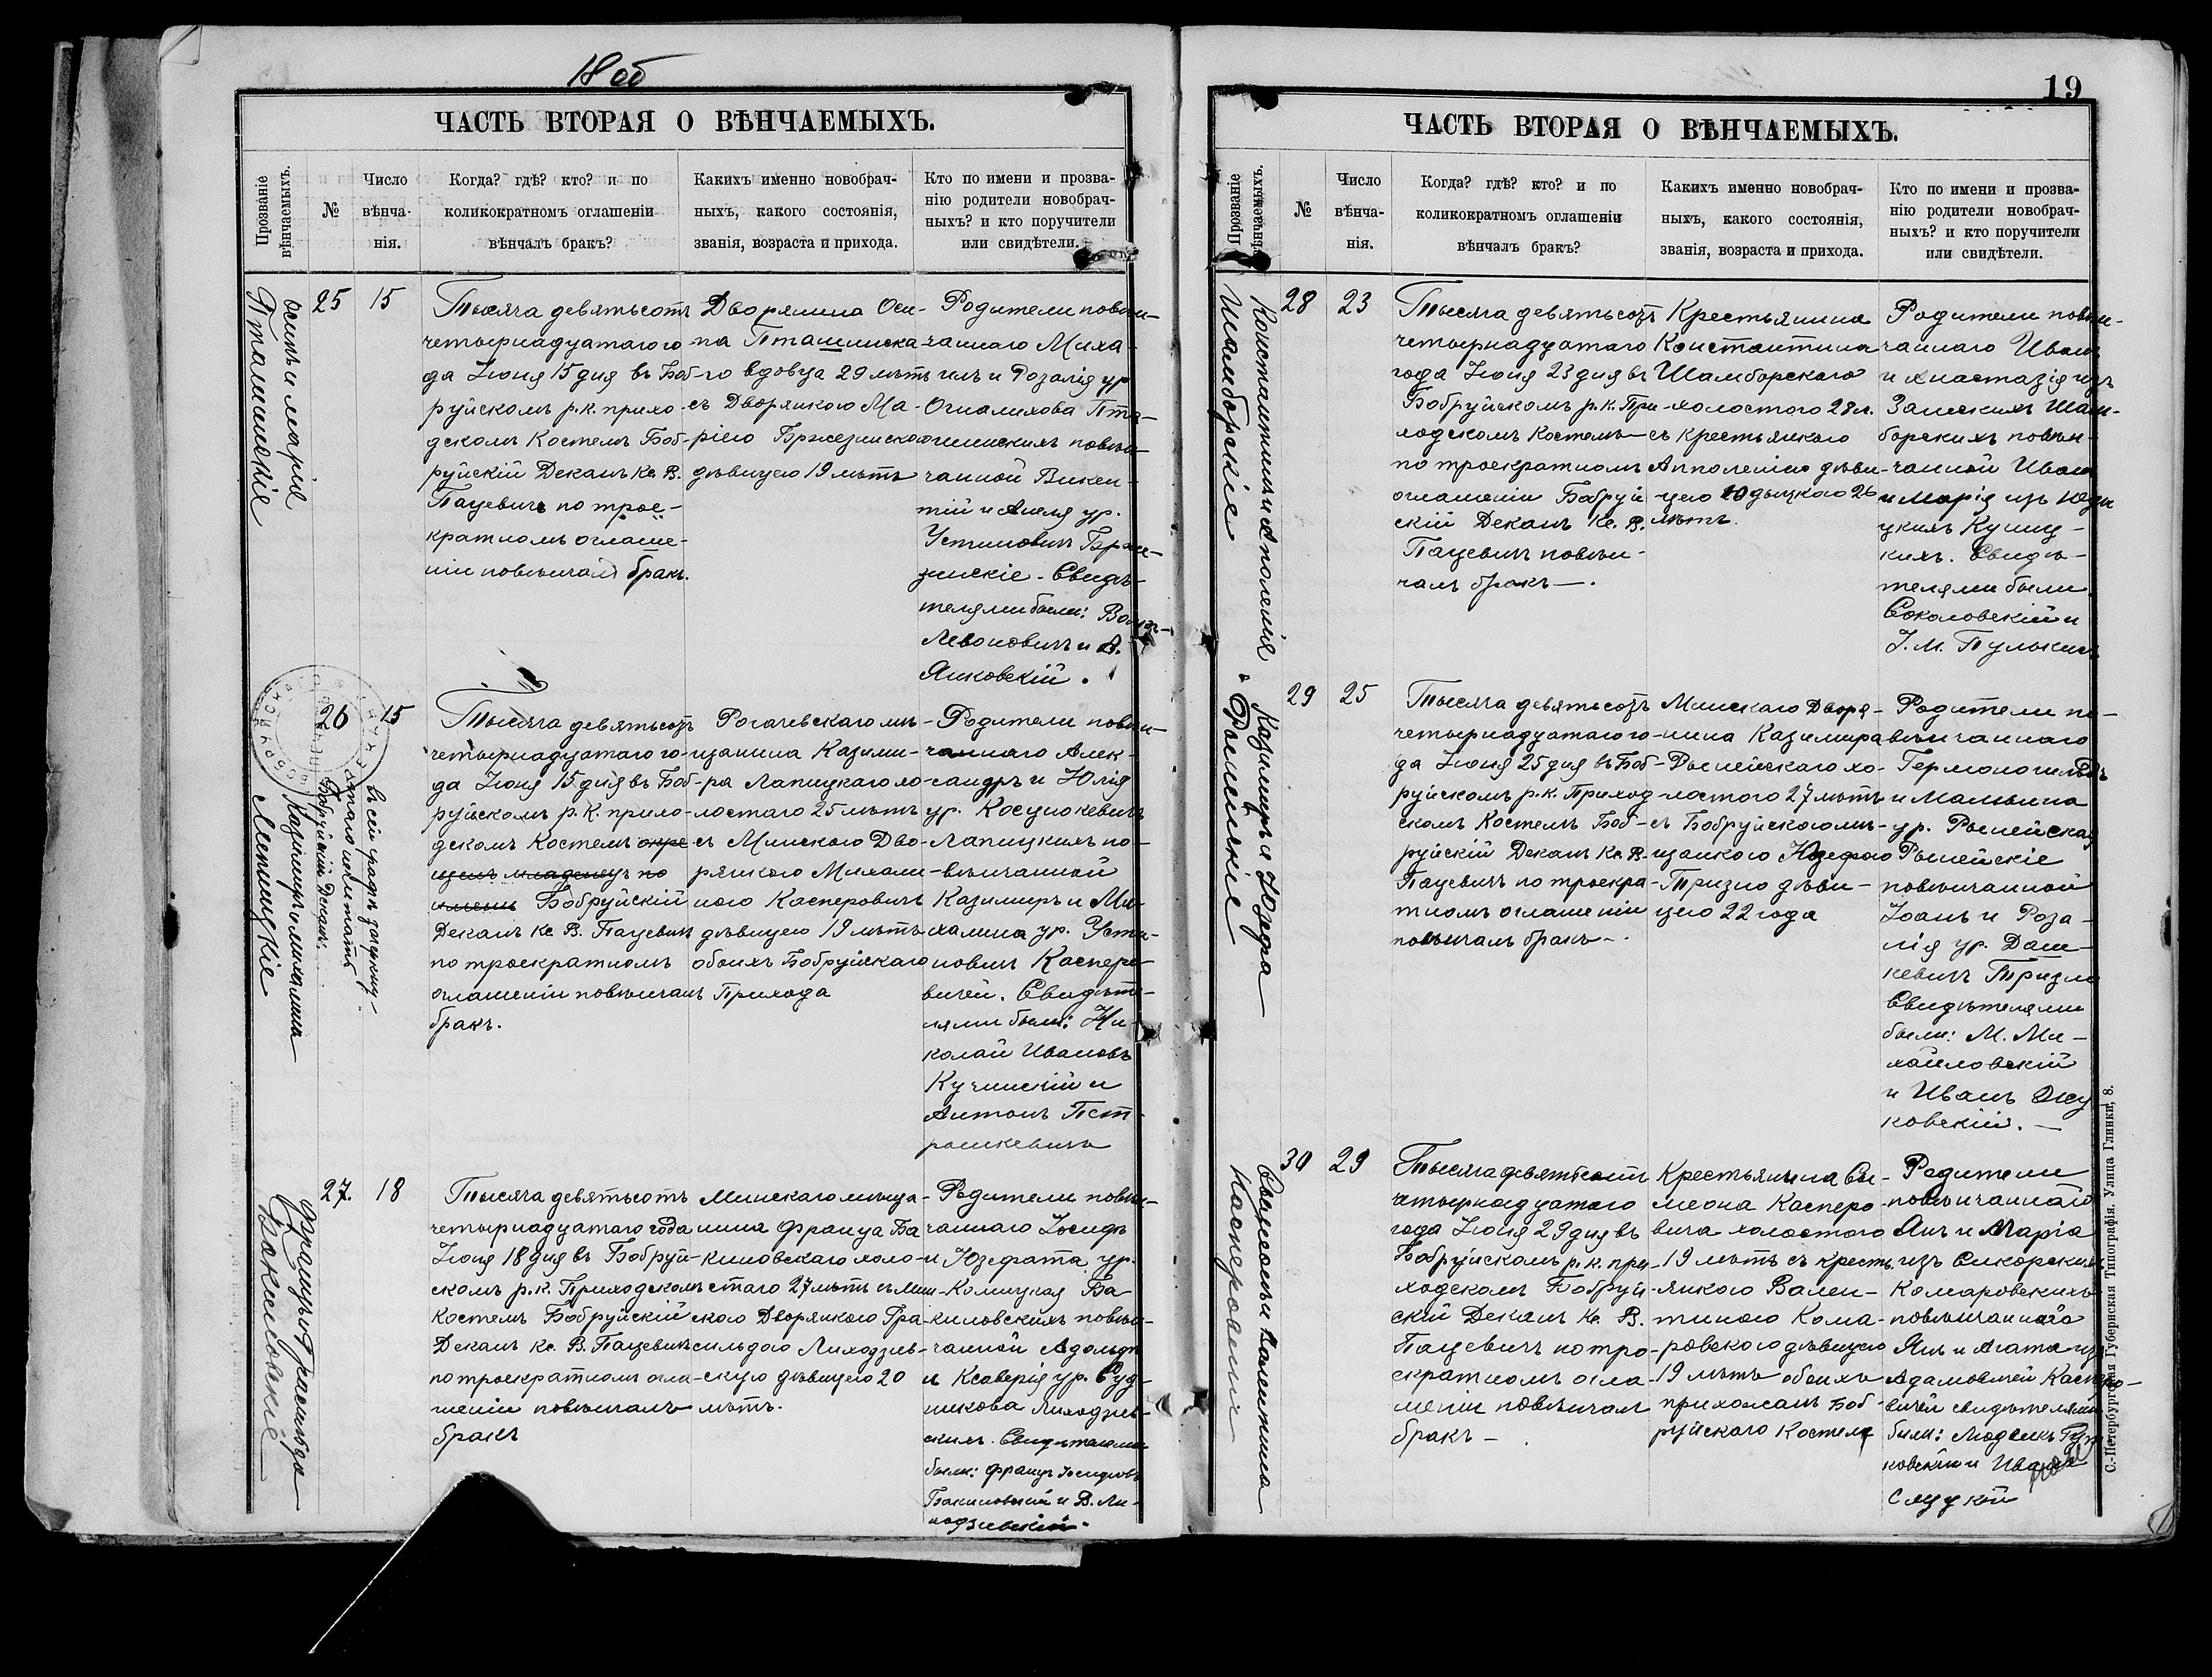 18 об
ЧАСТЬ ВТОРАЯ О ВѢНЧАЕМЫХЪ.
Прозваніе вѣнчаемыхъ.
№
Число вѣнча-нія.
Когда? гдѣ? кто? и по
коликократномъ оглашеніи
вѣнчалъ бракъ?
Какихъ именно новобрач-
ныхъ, какого состоянія,
званія, возраста и прихода.
Кто по имени и прозва-
нію родители новобрач-
ныхъ? и кто поручители
или свидѣтели.
Осипъ и Марія
Пташинскіе
25
15
Тысяча девятьсотъ
четырнадцатаго го-
да Іюня 15 дня въ Боб-
руйскомъ р.к. прихо-
дскомъ Костелѣ Боб-
руйскій Деканъ Кс. В.
Пацевичъ по трое-
кратномъ оглаше-
ніи повѣнчалъ бракъ.
Дворянина Оси-
па Пташинска-
го вдовца 29 лѣтъ
съ Дворянкою Ма-
ріею Бржезинскою
дѣвицею 19 лѣтъ
Родители повѣн-
чаннаго Миха-
илъ и Розалія ур
Огналихова Пта-
шинскихъ повѣн-
чанной Викен-
тій и Анеля ур.
Устиновичъ Брже-
зинскіе. Свидѣ-
телями были:
Левоновичъ и А.
Янковскій.
Казиміръ и Михалина
Лепницкіе
Въ сей графѣ зачеркну-
Бобруйскій Деканъ.
26
15
Тысяча девятьсотъ
четырнадцатаго го-
да Іюня 15 дня въ Боб-
руйскомъ р.к. прихо-
дскомъ Костелѣ окре
щенъ младенецъ по
имени Бобруйскій
Деканъ Кс. В. Пацевичъ
по троекратномъ
оглашеніи повѣнчалъ
бракъ.
Рогачевскаго мѣ-
щанина Казими-
ра Лапицкаго хо-
лостаго 25 лѣтъ
съ Минскою Дво-
рянкою Михали-
ною Касперовичъ
дѣвицею 19 лѣтъ
обоихъ Бобруйскаго
Прихода
Родители повѣн-
чаннаго Алек-
сандръ и Юлія
ур. Косуцкевичъ
Лапицкихъ по-
вѣнчанной
Казимиръ и Ми-
халина ур. Усти-
новичъ Каспере-
вичей. Свидѣте-
лями были: Ни-
колай Ивановъ
Кучинскій и
Антонъ Пет-
рашкевичъ
Францъ и Грасильда
Бакиновскіе
27.
18
Тысяча девятьсотъ
четырнадцатаго года
Іюня 18 дня въ Бобруй-
скомъ р.к. Приходскомъ
Костелѣ Бобруйскій
Деканъ Кс. В. Пацевичъ
по троекратномъ огла-
шеніи повѣнчалъ
бракъ
Минскаго мѣща-
нина Франца Ба
киновскаго холо-
стаго 27 лѣтъ съ Мин-
скою Дворянкою Гра-
сильдою Лиходзіев-
скую дѣвицею 20
лѣтъ.
Родители повѣн-
чаннаго Іосифъ
и Юзефата ур.
Колицкая Ба-
киновскихъ повѣн-
чанной Адольфъ
и Ксаверія ур. Суд-
никова Лиходзіев-
скихъ. Свидѣтелями
были: Францъ Іосифовъ
Бакиновскій и В. Ли-
ходзіевскій.
19
ЧАСТЬ ВТОРАЯ О ВѢНЧАЕМЫХЪ.
Прозваніе вѣнчаемыхъ.
№
Число вѣнча-нія.
Когда? гдѣ? кто? и по
коликократномъ оглашеніи
вѣнчалъ бракъ?
Какихъ именно новобрач-
ныхъ, какого состоянія,
званія, возраста и прихода.
Кто по имени и прозва-
нію родители новобрач-
ныхъ? и кто поручители
или свидѣтели.
Константинъ и Аполенія
Шамборскіе
28
23
Тысяча девятьсотъ
четырнадцатаго
года Іюня 23 дня въ
Бобруйскомъ р.к. При-
ходскомъ Костелѣ
по троекратномъ
оглашеніи Бобруй
скій Деканъ Кс. В.
Пацевичъ повѣн-
чалъ бракъ.
Крестьянина
Константина
Шамборскаго
холостого 28 л.
съ крестьянкою
Апполеніею дѣви-
цею Юдыцкою 26
лѣтъ.
Родители повѣн-
чаннаго Иванъ
и Анастазія изъ
Залескихъ Шам-
борскихъ повѣн-
чанной Иванъ
и Марія изъ
цкихъ Кулиц-
кихъ. Свидѣ-
телями были
Соколовскій и
І. М. Пулькинъ
Казиміръ и Юзефа
Рынейскіе
29
25
Тысяча девятьсотъ
четырнадцатаго го-
да Іюня 25 дня въ Боб-
руйскомъ р.к. Приход
скомъ Костелѣ Боб-
руйскій Деканъ Кс. В.
Пацевичъ по троекра-
тномъ оглашеніи
повѣнчалъ бракъ.
Минскаго Дворя-
нина Казимира
Рынейскаго хо-
лостого 27 лѣтъ
съ Бобруйскою мѣ-
щанкою Юзефою
Тризно дѣви-
цею 22 года
Родители по-
вѣнчаннаго
Гермоногильдъ
и Мальвина
ур. Рынейская
Рынейскіе
повѣнчанной
Іоанъ и Роза-
лія ур. Даш-
кевичъ Тризно
Свидѣтелями
были: М. Ми-
хайловскій
и Иванъ
ковскій.
Сымеонъ и Валентина
Касперовичи
30
29
Тысяча девятьсотъ
четырнадцатаго
года Іюня 29 дня въ
Бобруйскомъ р.к. при-
ходскомъ Бобруй-
скій Деканъ Кс. В.
Пацевичъ по тро-
екратномъ огла-
шеніи повѣнчалъ
бракъ.
Крестьянина Сы-
меона Касперо-
вича холостого
19 лѣтъ съ кресть
янкою Вален-
тиною Кома-
ровскою дѣвицею
19 лѣтъ обоихъ
прихожанъ Боб-
руйского Костела
Родители
повѣнчаннаго
Янъ и Марія
изъ Сикорскихъ
Комаровскихъ
повѣнчаннаго
Янъ и Агата изъ
Адамовичей Каспро-
вичей свидѣтелями
были: Людвикъ
ковскій и Иванъ
Слуцкій
С.-Петербургская Губернская Типографія. Улица Глинки, 8.